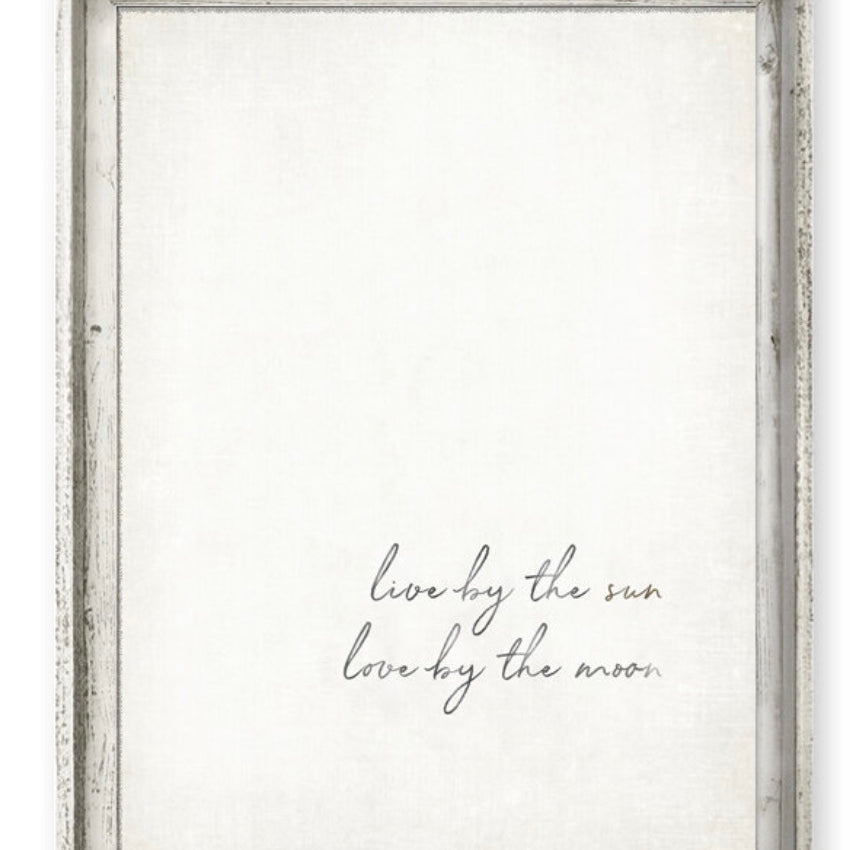 live by the sun
love by the moon